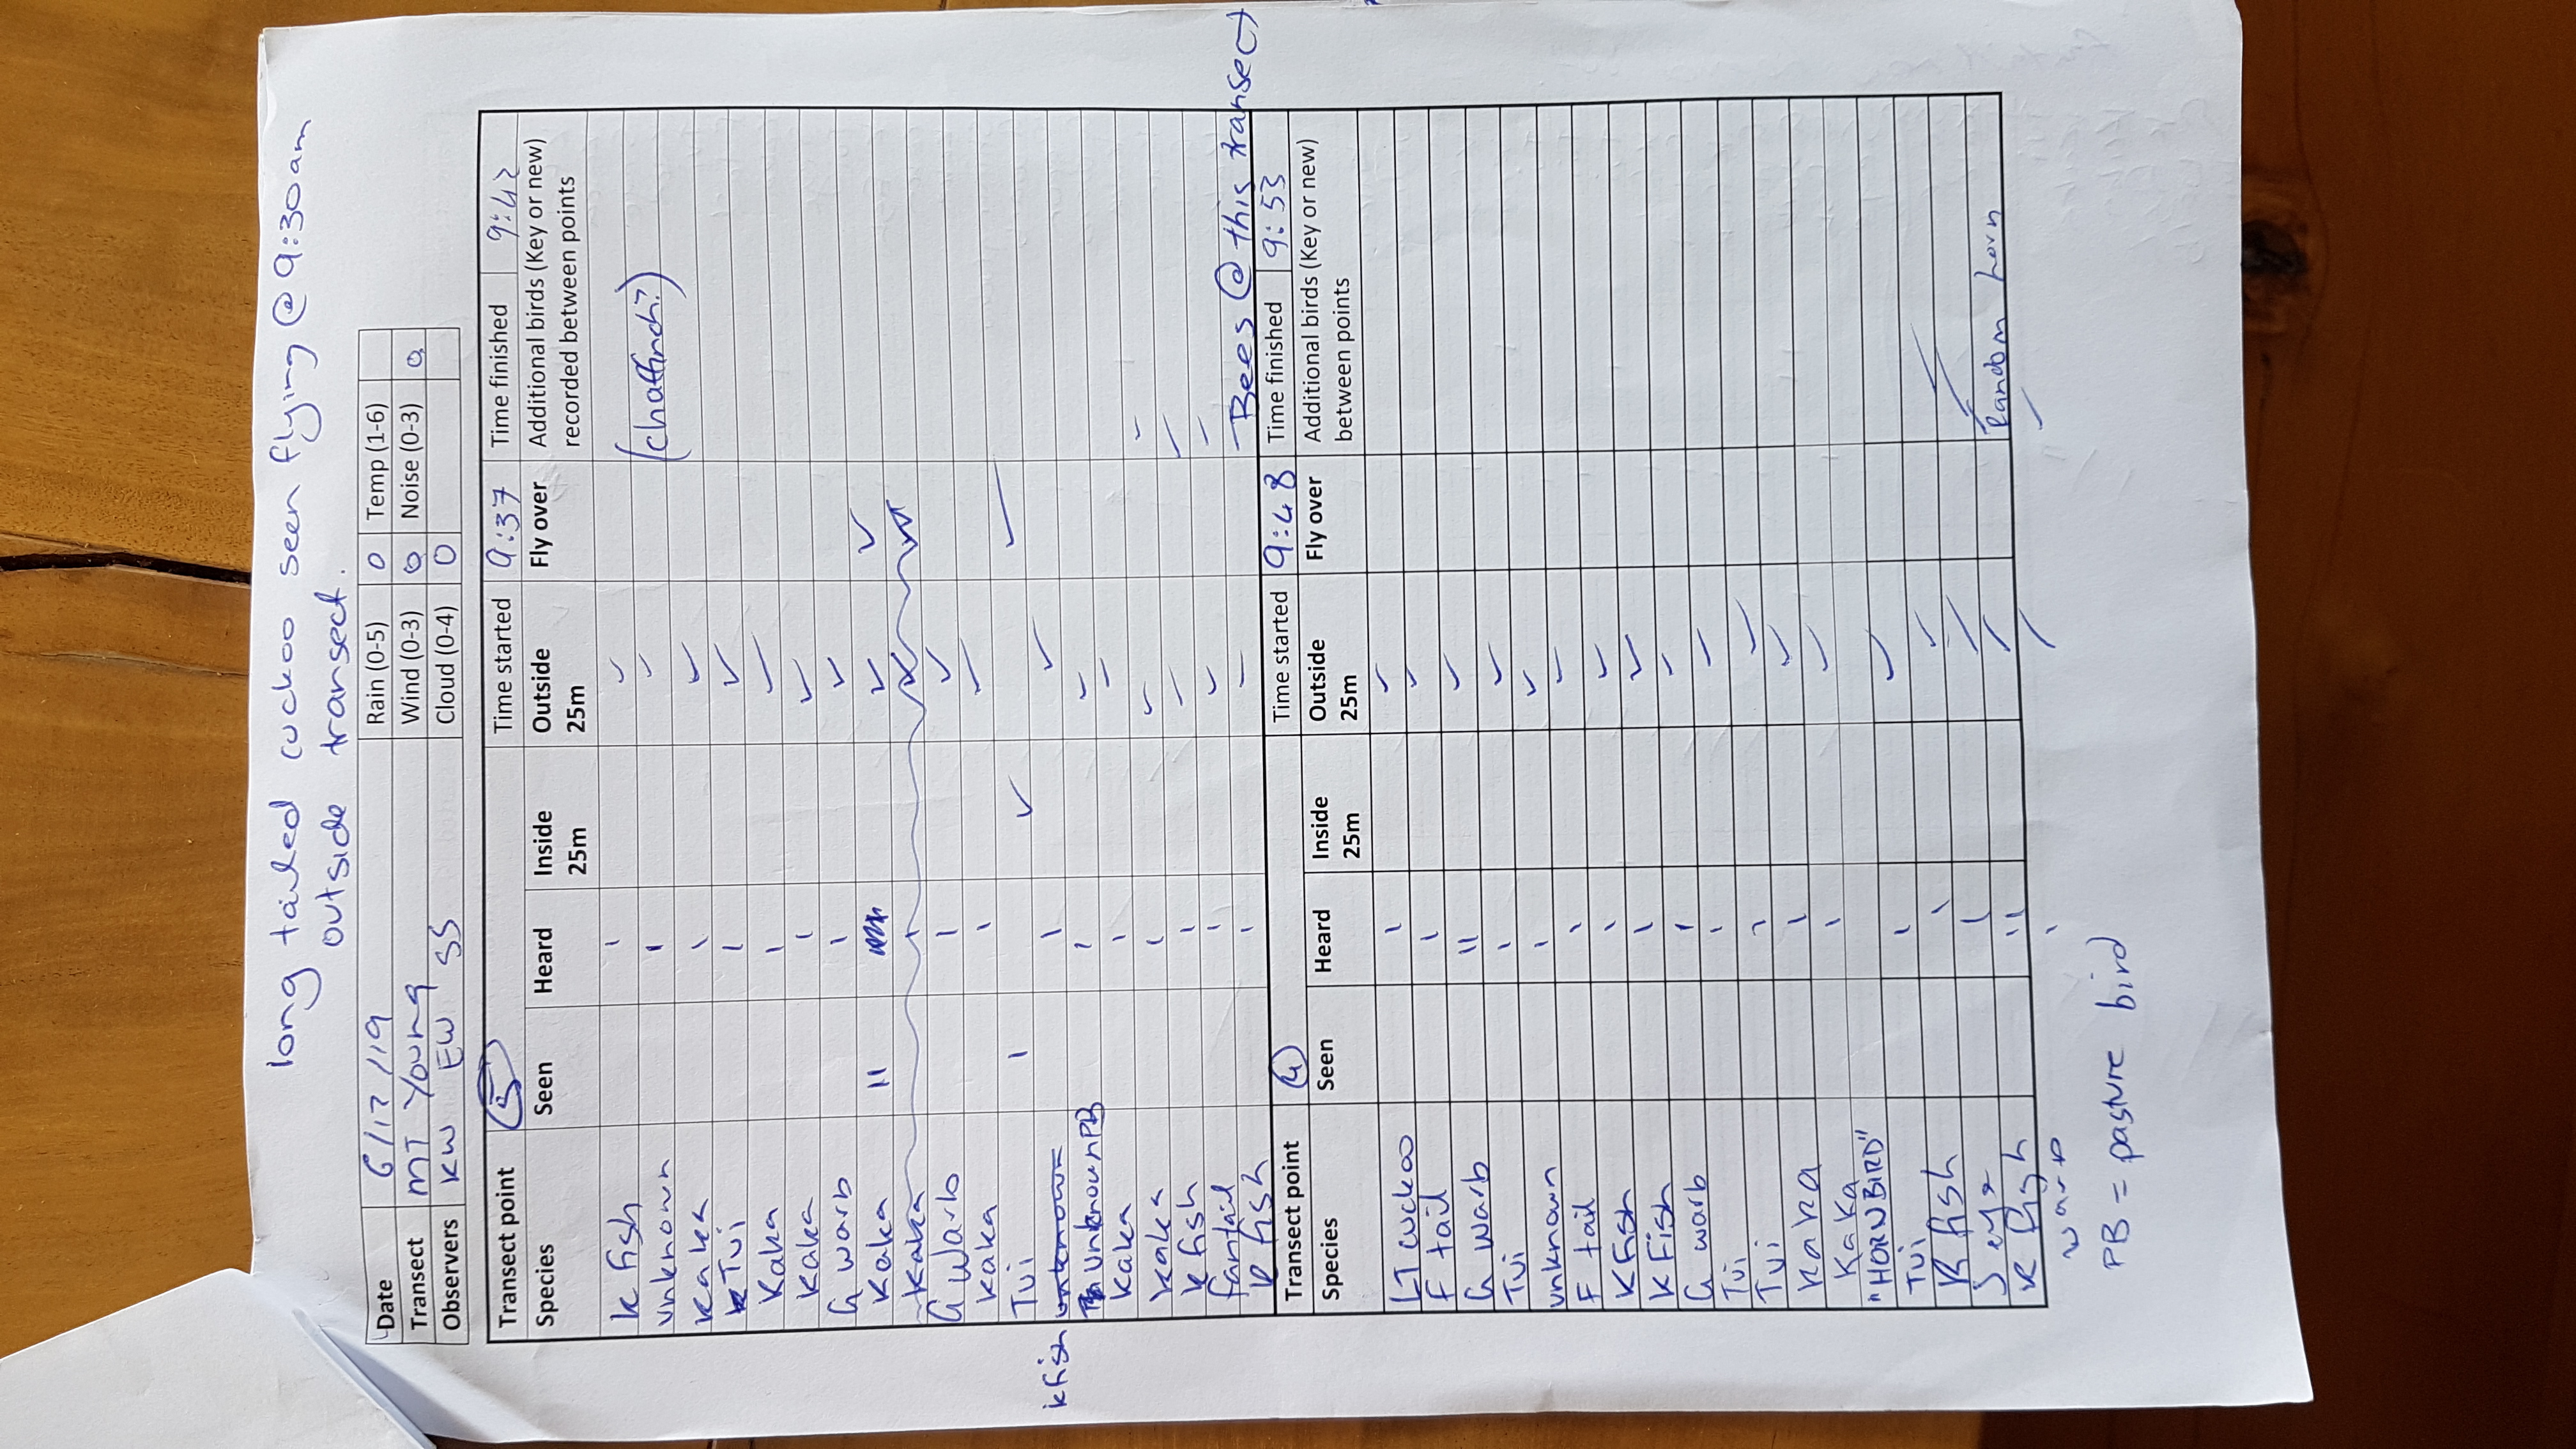 long tailed cuckoo seen flying @ 9:30am
outside transect.
Date 6/12/19 Rain (0-5) 0 Temp (1-6)
Transect MT Young Wind (0-3) 0 Noise (0-3) 0
Observers KW EW SS Cloud (0-4) 0
Transect point 5 Time started 9:37 Time finished 9:42
Species Seen Heard Inside 25m Outside 25m Fly over Additional birds (Key or new) recorded between points
K fish I ✓
unknown I ✓ (chaffinch?)
Kaka I ✓
Tui I ✓
Kaka I ✓
Kaka I ✓
G warb I ✓
Kaka II ✓ ✓
Kaka I
G Warb I ✓
Kaka I ✓
Tui I ✓ ✓
K fish unknown I ✓
Unknown PB I ✓
Kaka I ✓
Kaka I ✓ ✓
K fish I ✓ ✓
fantail I ✓ ✓
K fish I ✓ Bees @ this transect
Transect point 4 Time started 9:48 Time finished 9:53
Species Seen Heard Inside 25m Outside 25m Fly over Additional birds (Key or new) between points
LT cuckoo I ✓
F tail I ✓
G warb II ✓
Tui I ✓
unknown I ✓
F tail I ✓
K fish I ✓
K fish I ✓
G warb I ✓
Tui I ✓
Tui I ✓
Kaka I ✓
Kaka I ✓
"HORNBIRD"
Tui I ✓
K fish I ✓
S eye I ✓
K fish II ✓ Random horn
warb I ✓ ✓
PB = pasture bird